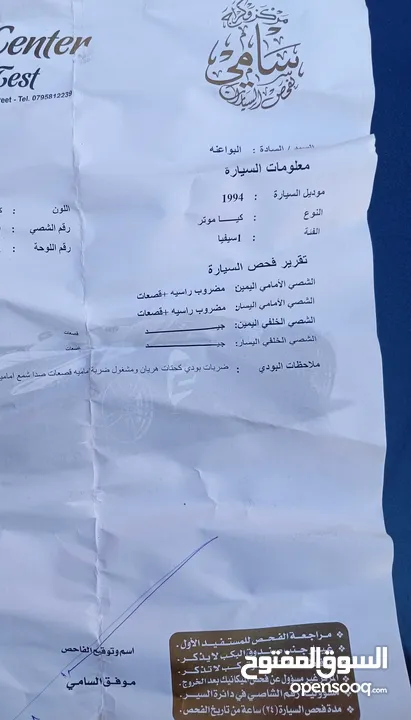 Center
Test
Tel. 0795812239
مركز وكراج
سامي
لفحص السيارات
السادة : البواعنه
معلومات السيارة
موديل السيارة : 1994
اللون :
النوع : كيا موتر
رقم الشصي :
الفئة : اسيفيا
رقم اللوحة :
تقرير فحص السيارة
الشصي الأمامي اليمين: مضروب راسيه +قصعات
الشصي الأمامي اليسار: مضروب راسيه +قصعات
الشصي الخلفي اليمين: جيد قصعات
الشصي الخلفي اليسار: جيد
ملاحظات البودي : ضربات بودي كحتات هريان ومشغول ضربة ماميه قصعات صدا شمع
اسم وتوقيع الفاحص
موفق السامي
مراجعة الفحص للمستفيد الأول.
صندوق البكب لا يذكر.
بكب لا تذكر.
غير مسؤول عن فحص الميكانيك بعد الخروج.
رقم الشاصي في دائرة السير.
مدة فحص السيارة (٢٤) ساعة من تاريخ الفحص.
السوق المفتوح
opensooq.com